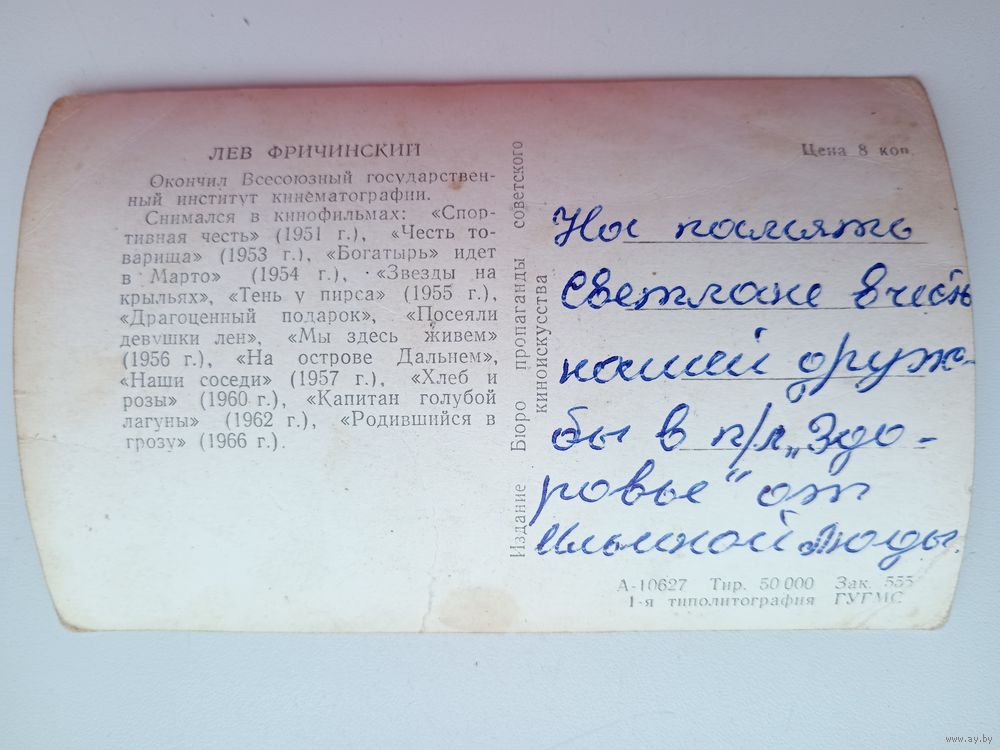 ЛЕВ ФРИЧИНСКИЙ
Окончил Всесоюзный государствен-
ный институт кинематографии.
Снимался в кинофильмах: «Спор-
тивная честь» (1951 г.), «Честь то-
варища» (1953 г.), «Богатырь» идет
в Марто» (1954 г.), «Звезды на
крыльях», «Тень у пирса» (1955 г.),
«Драгоценный подарок», «Посеяли
девушки лен», «Мы здесь живем»
(1956 г.), «На острове Дальнем»,
«Наши соседи» (1957 г.), «Хлеб и
розы» (1960 г.), «Капитан голубой
лагуны» (1962 г.), «Родившийся в
грозу» (1966 г.).
Издание Бюро пропаганды советского
киноискусства
Цена 8 коп.
На память
Светлане в честь
нашей друж-
бы в п/л „Здо-
ровье“ от
Ильиной Люды.
А-10627 Тир. 50 000 Зак. 555
1-я типолитография ГУГМС
www.ay.by